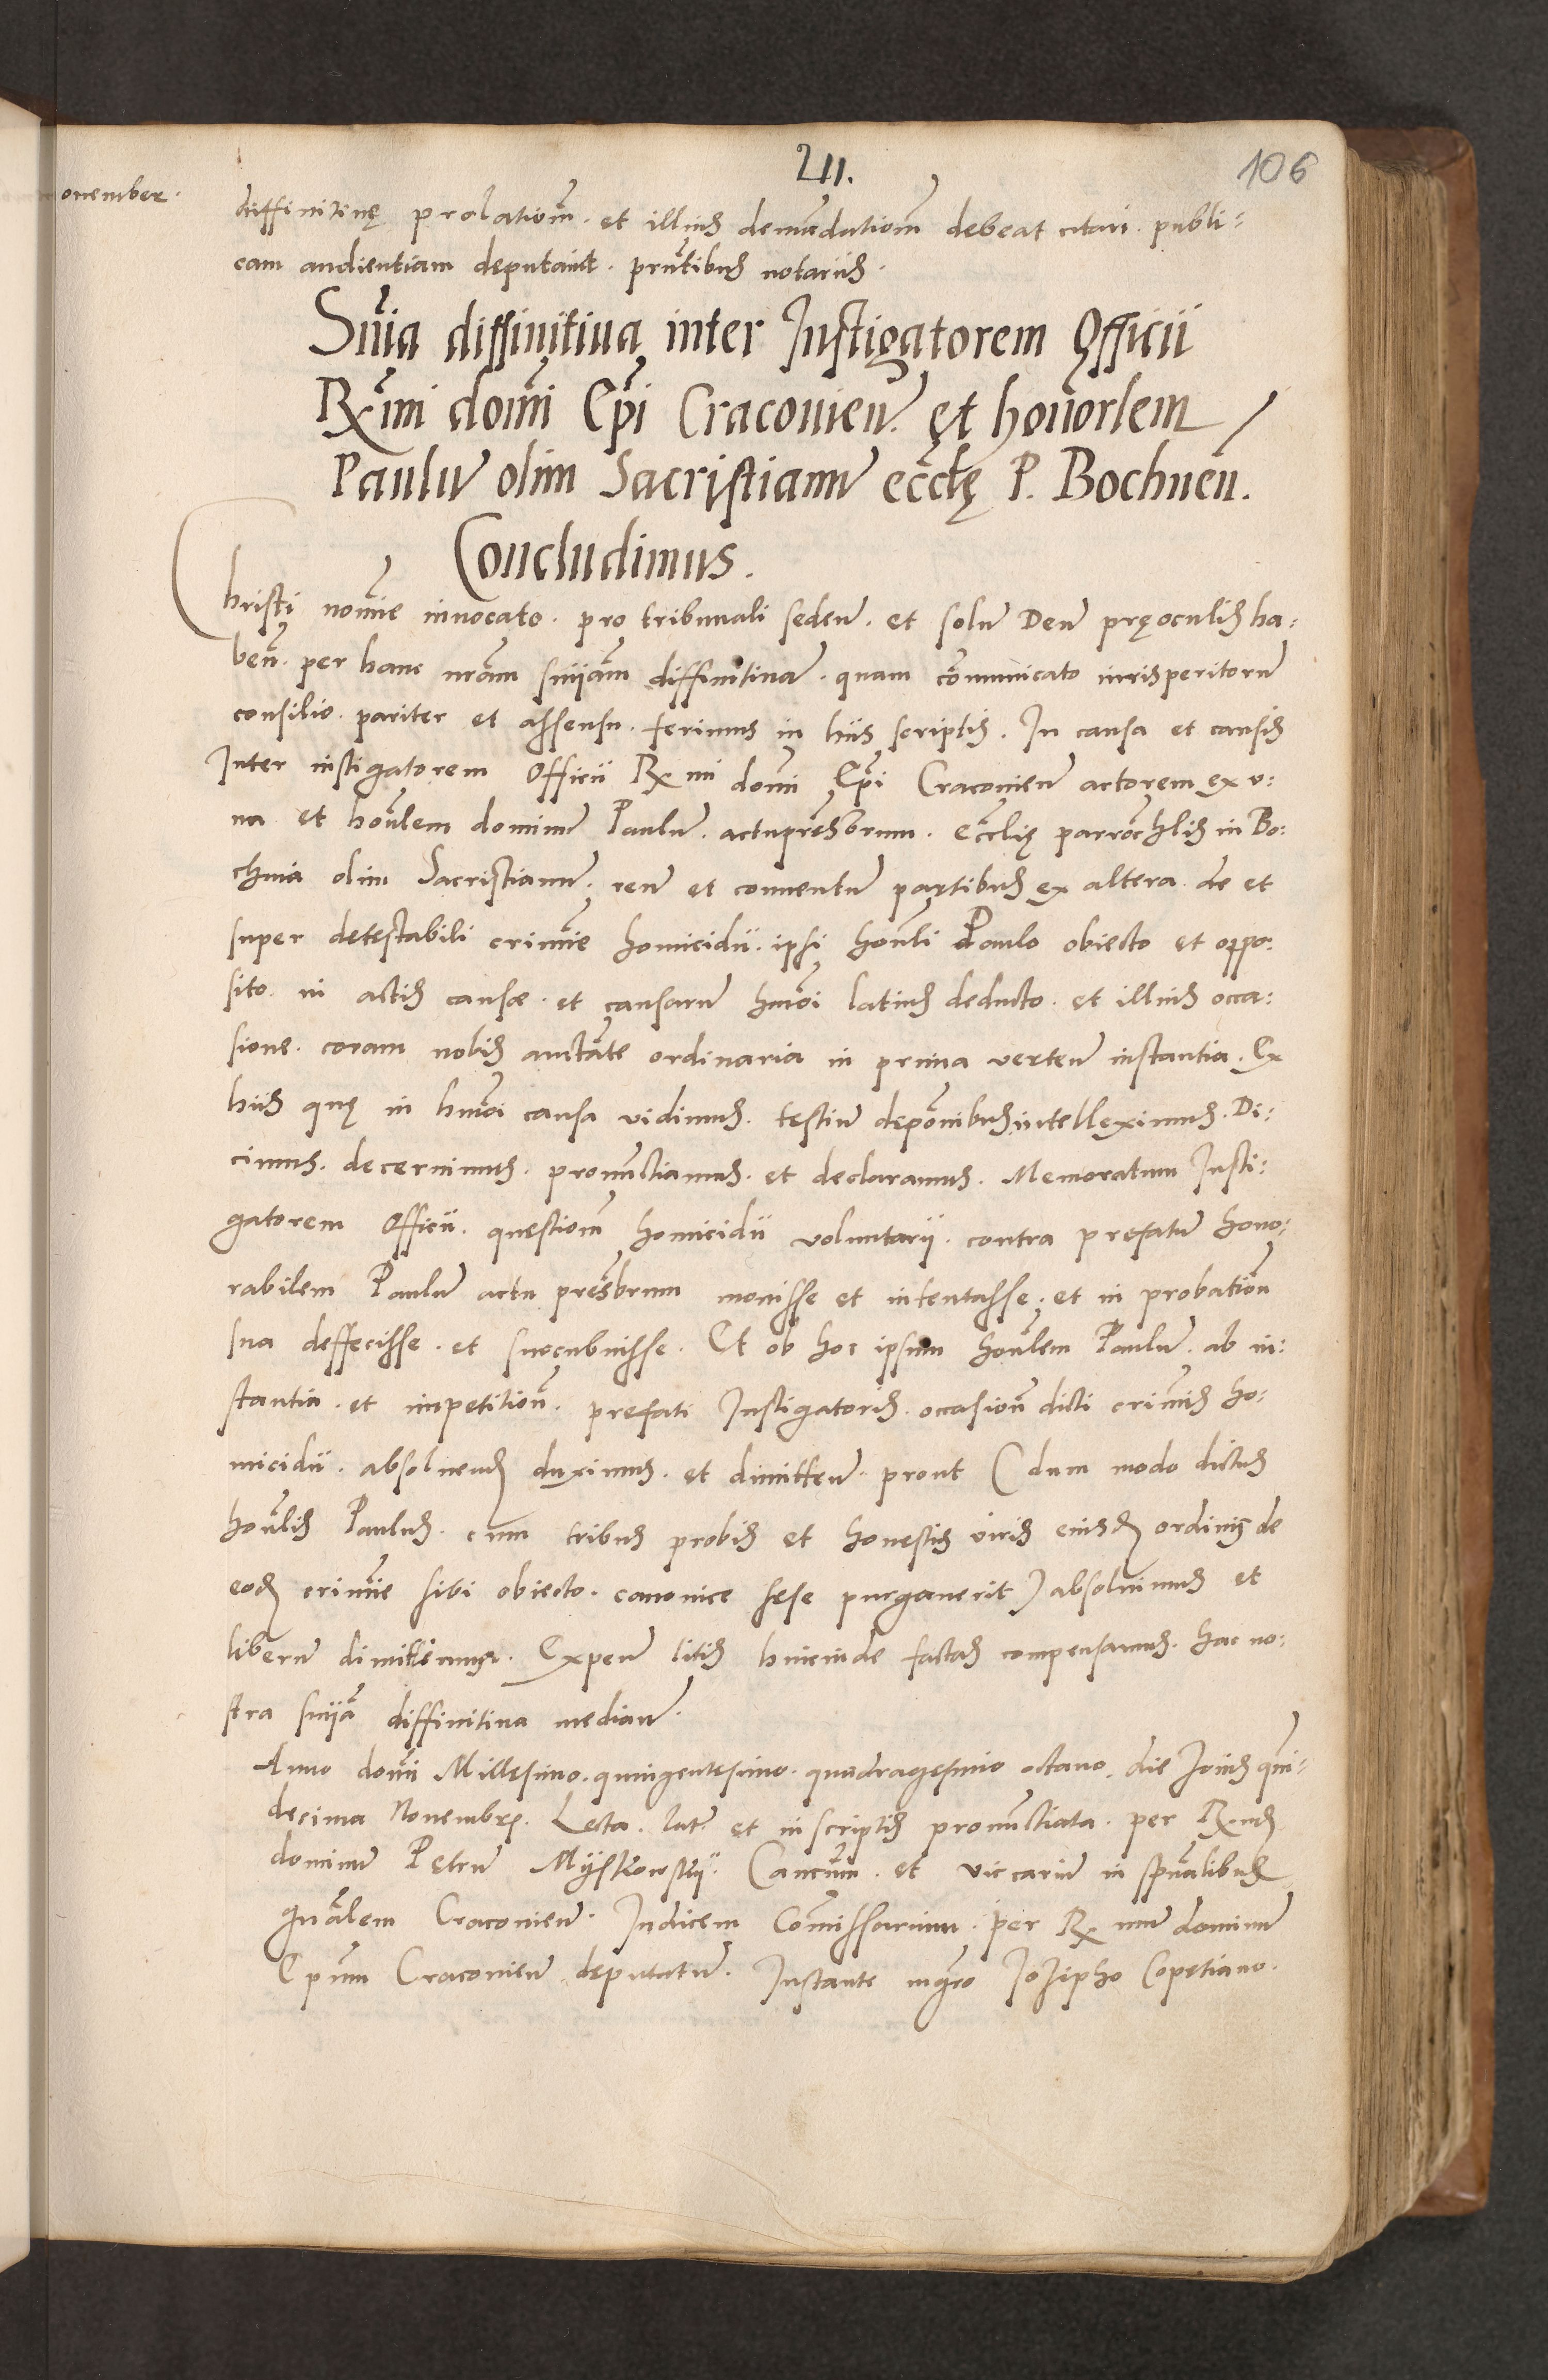 211.
106
onember.
diffinitinę prolationẽ. et illius demãdationẽ debeat citari. publi=
cam audientiam deputauit. prñtibus notariis.
Snĩa diffinitiua inter Instigatorem Officii
Rx̃mi domĩ Epĩ Cracouieñ. et honorlem
Paulũ olim Sacristianũ ecctę P. Bochneñ.
Concludimus.
Christi nomĩe inuocato. pro tribunali sedeñ. et solũ Deũ pręoculis ha=
beñ. per hanc nrãm snĩjam diffinitiuã. quam cõmunicato iurisperitorũ
consilio. pariter et assensu. ferimus in hiis scriptis. In causa et causis
Inter instigatorem Officii Rx mi domĩ Epĩ Cracouieñ actorem ex v=
na et honlem dominũ Paulũ. actupresbrum. Ecclię parrochlis in Bo=
chnia olim Sacristianũ. reũ et conuentũ partibus ex altera. de et
super detestabili crimĩe homicidii. ipsi honli Paulo obiecto et oppo=
sito. in actis causæ. et causarũ hmõi latius deducto. et illius occa=
sione. coram nobis auctãte ordinaria in prima verteñ instantia. Ex
hiis quę in hmõi causa vidimus. testiũ depõnibus intelleximus. Di=
cimus. decernimus. pronũctiamus. et declaramus. Memoratum Insti=
gatorem Officii. questionẽ homicidii voluntarij. contra prefatũ hono=
rabilem Paulũ actu presbrum mouisse et intentasse. et in probationẽ
sua deffecisse. et succubuisse. Et ob hoc ipsum honlem Paulũ. ab in=
stantia. et impetitionẽ. prefati Instigatoris. occasionẽ dicti criminis ho=
micidii. absoluend duximus. et dimitteñ. prout (dum modo dictus
honlis Paulus. cum tribus probis et honestis viris eiusd ordinis de
eod crimĩe sibi obiecto. canonice sese purgauerit) absoluimus et
liberũ dimittimus. Expeñ litis hincinde factas compensamus. hac no=
stra snĩja diffinitiua mediañ.
Anno domĩ Millesimo. quingentesimo. quadragesimo octauo. die Jouis qui=
decima Nouembrs. Lecta. lat. et in scriptis pronũctiata. per Rnd
dominũ Petrũ Myszkowskij. Cancũm. et viccariũ in spũalibus
gnãlem Cracouieñ. Iudicem Cõmissarium. per Rx mũ dominũ
Epũm Cracouieñ deputatũ. Instante mgro Jozipho Copetiano.